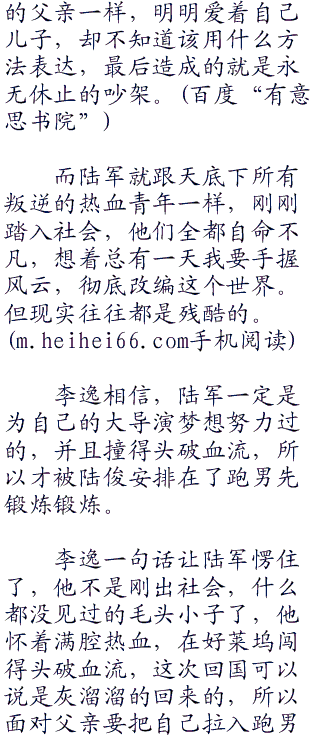 的父亲一样，明明爱着自己
儿子，却不知道该用什么方
法表达，最后造成的就是永
无休止的吵架。(百度“有意
思书院”)
而陆军就跟天底下所有
叛逆的热血青年一样，刚刚
踏入社会，他们全都自命不
凡，想着总有一天我要手握
风云，彻底改编这个世界。
但现实往往都是残酷的。
(m.heihei66.com手机阅读)
李逸相信，陆军一定是
为自己的大导演梦想努力过
的，并且撞得头破血流，所
以才被陆俊安排在了跑男先
锻炼锻炼。
李逸一句话让陆军愣住
了，他不是刚出社会，什么
都没见过的毛头小子了，他
怀着满腔热血，在好菜坞闯
得头破血流，这次回国可以
说是灰溜溜的回来的，所以
面对父亲要把自己拉入跑男